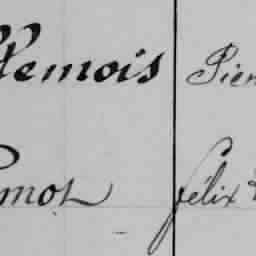 lemois Pier
mot félix